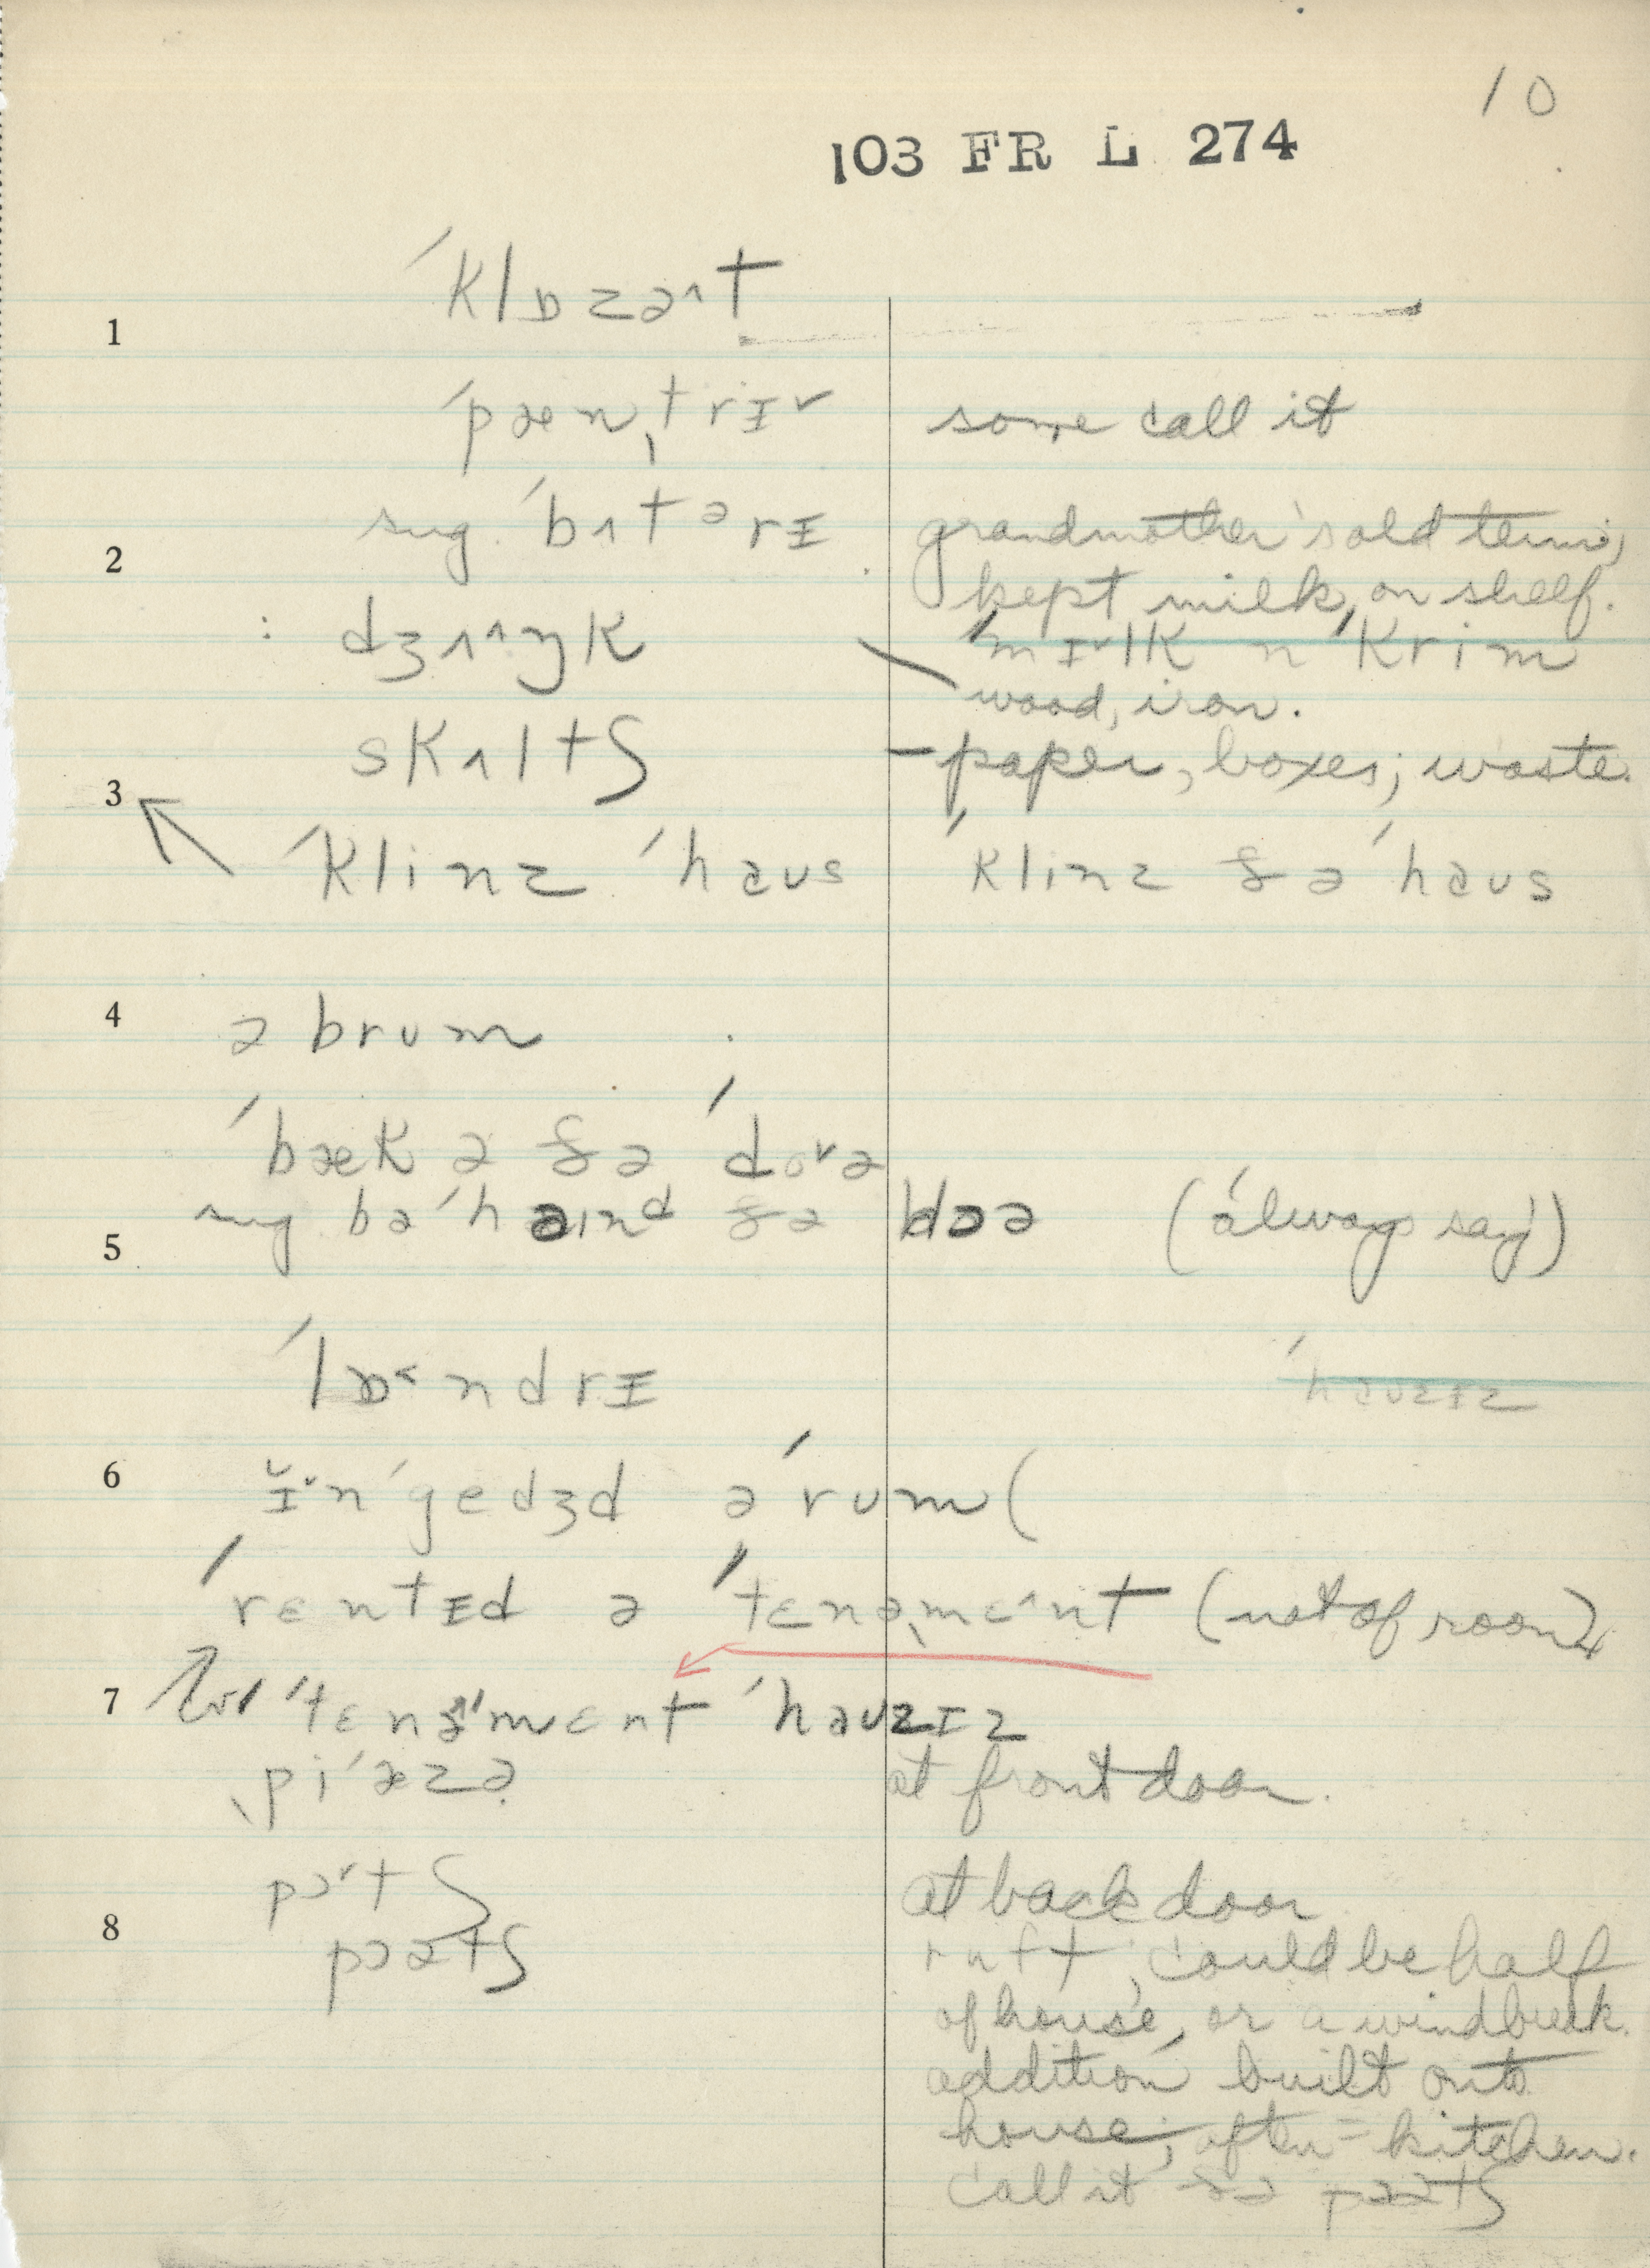 10
103 FR L 274
ˈklɒzə˄t
1
ˈpænˌtrɪ˅ some call it
sug. ˈbʌtᵊrɪ grandmother's old term;
2
kept milk, on shelf.
: dʒʌ˄ŋk ˈmɪ˅lk n ˈkrim
wood, iron.
skʌltʃ - paper, boxes; waste.
3
ˈklinz ˈhaus ˈklinz ðə ˈhaus
4
ə brum
ˈbæk ə ðə ˈdo˅ə
sug bəˈhaɪnd ðə dɔə (always say)
5
ˈlɒ˂ndrɪ
ˈhauzɪz
6
ɪ˅nˈgedʒd ə ˈrum (
ˈrɛntɪd ə ˈtɛnəˌmɛ˄nt (not of room)
7 ˈtɛnəmɛnt ˈhauzɪz
ˌpiˈæzə at front door.
pɔ˅tʃ at back door
8
pɔətʃ rʌft, could be half
of house, or a windbreak.
addition built onto
house; often = kitchen.
call it ðə pɔətʃ